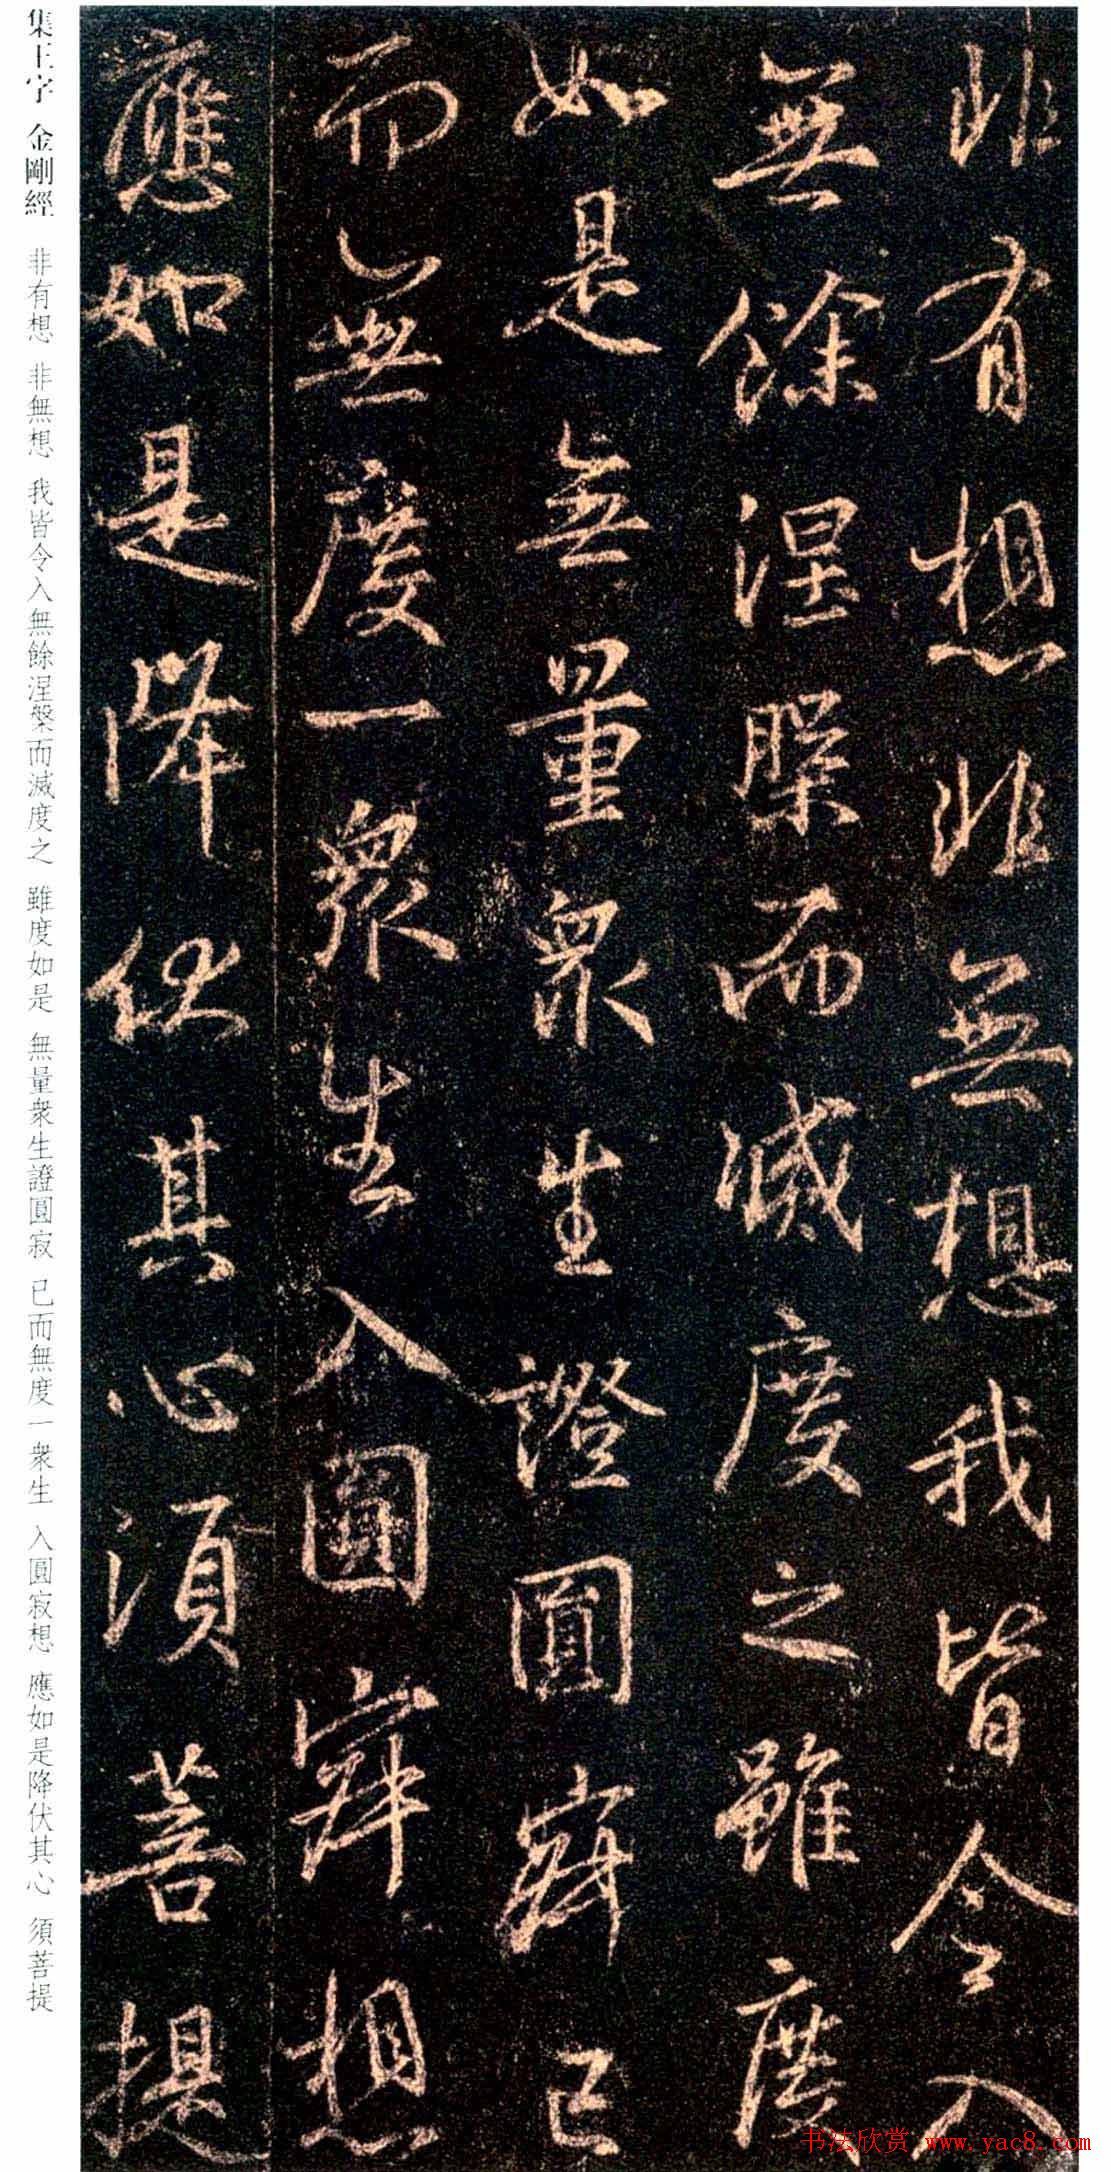 非有想非無想我皆令入
無餘涅槃而滅度之雖度
如是無量眾生證圓寂已
而無度一眾生入圓寂想
應如是降伏其心須菩提
集王字 金剛經 非有想 非無想 我皆令入無餘涅槃而滅度之 雖度如是 無量衆生證圓寂 已而無度一衆生 入圓寂想 應如是降伏其心 須菩提
书法欣赏 www.yac8.com